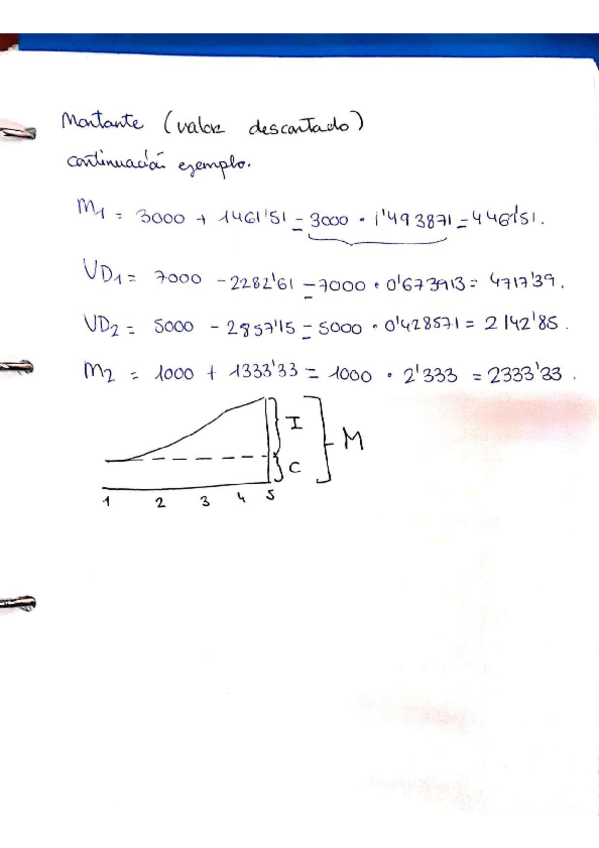 Montante (valor descontado)
continuación ejemplo.
M1 = 3000 + 1461'51 = 3000 · 1'493871 = 4461'51.
VD1 = 7000 - 2282'61 = 7000 · 0'673913 = 4717'39.
VD2 = 5000 - 2857'15 = 5000 · 0'428571 = 2142'85.
M2 = 1000 + 1333'33 = 1000 · 2'333 = 2333'33.
I
M
C
1 2 3 4 5